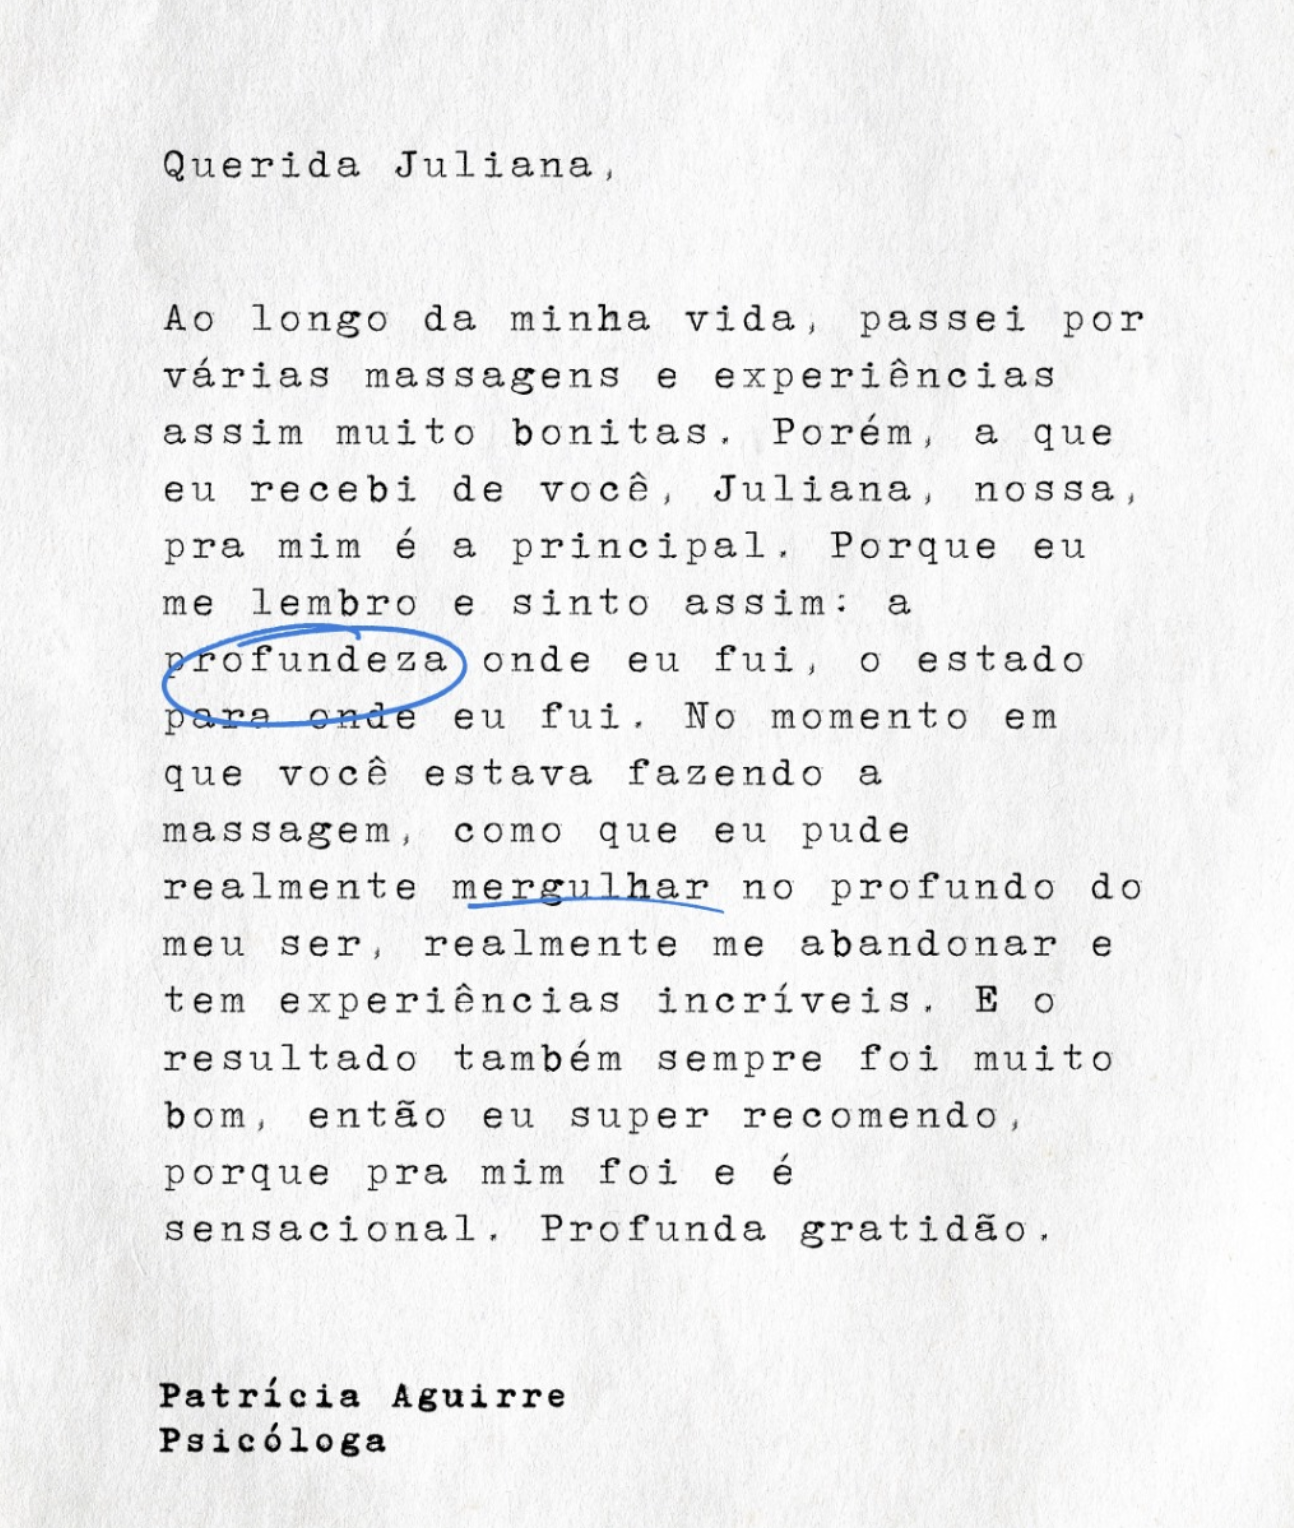 Querida Juliana,
Ao longo da minha vida, passei por
várias massagens e experiências
assim muito bonitas. Porém, a que
eu recebi de você, Juliana, nossa,
pra mim é a principal. Porque eu
me lembro e sinto assim: a
profundeza onde eu fui, o estado
para onde eu fui. No momento em
que você estava fazendo a
massagem, como que eu pude
realmente mergulhar no profundo do
meu ser, realmente me abandonar e
tem experiências incríveis. E o
resultado também sempre foi muito
bom, então eu super recomendo,
porque pra mim foi e é
sensacional. Profunda gratidão.
Patrícia Aguirre
Psicóloga